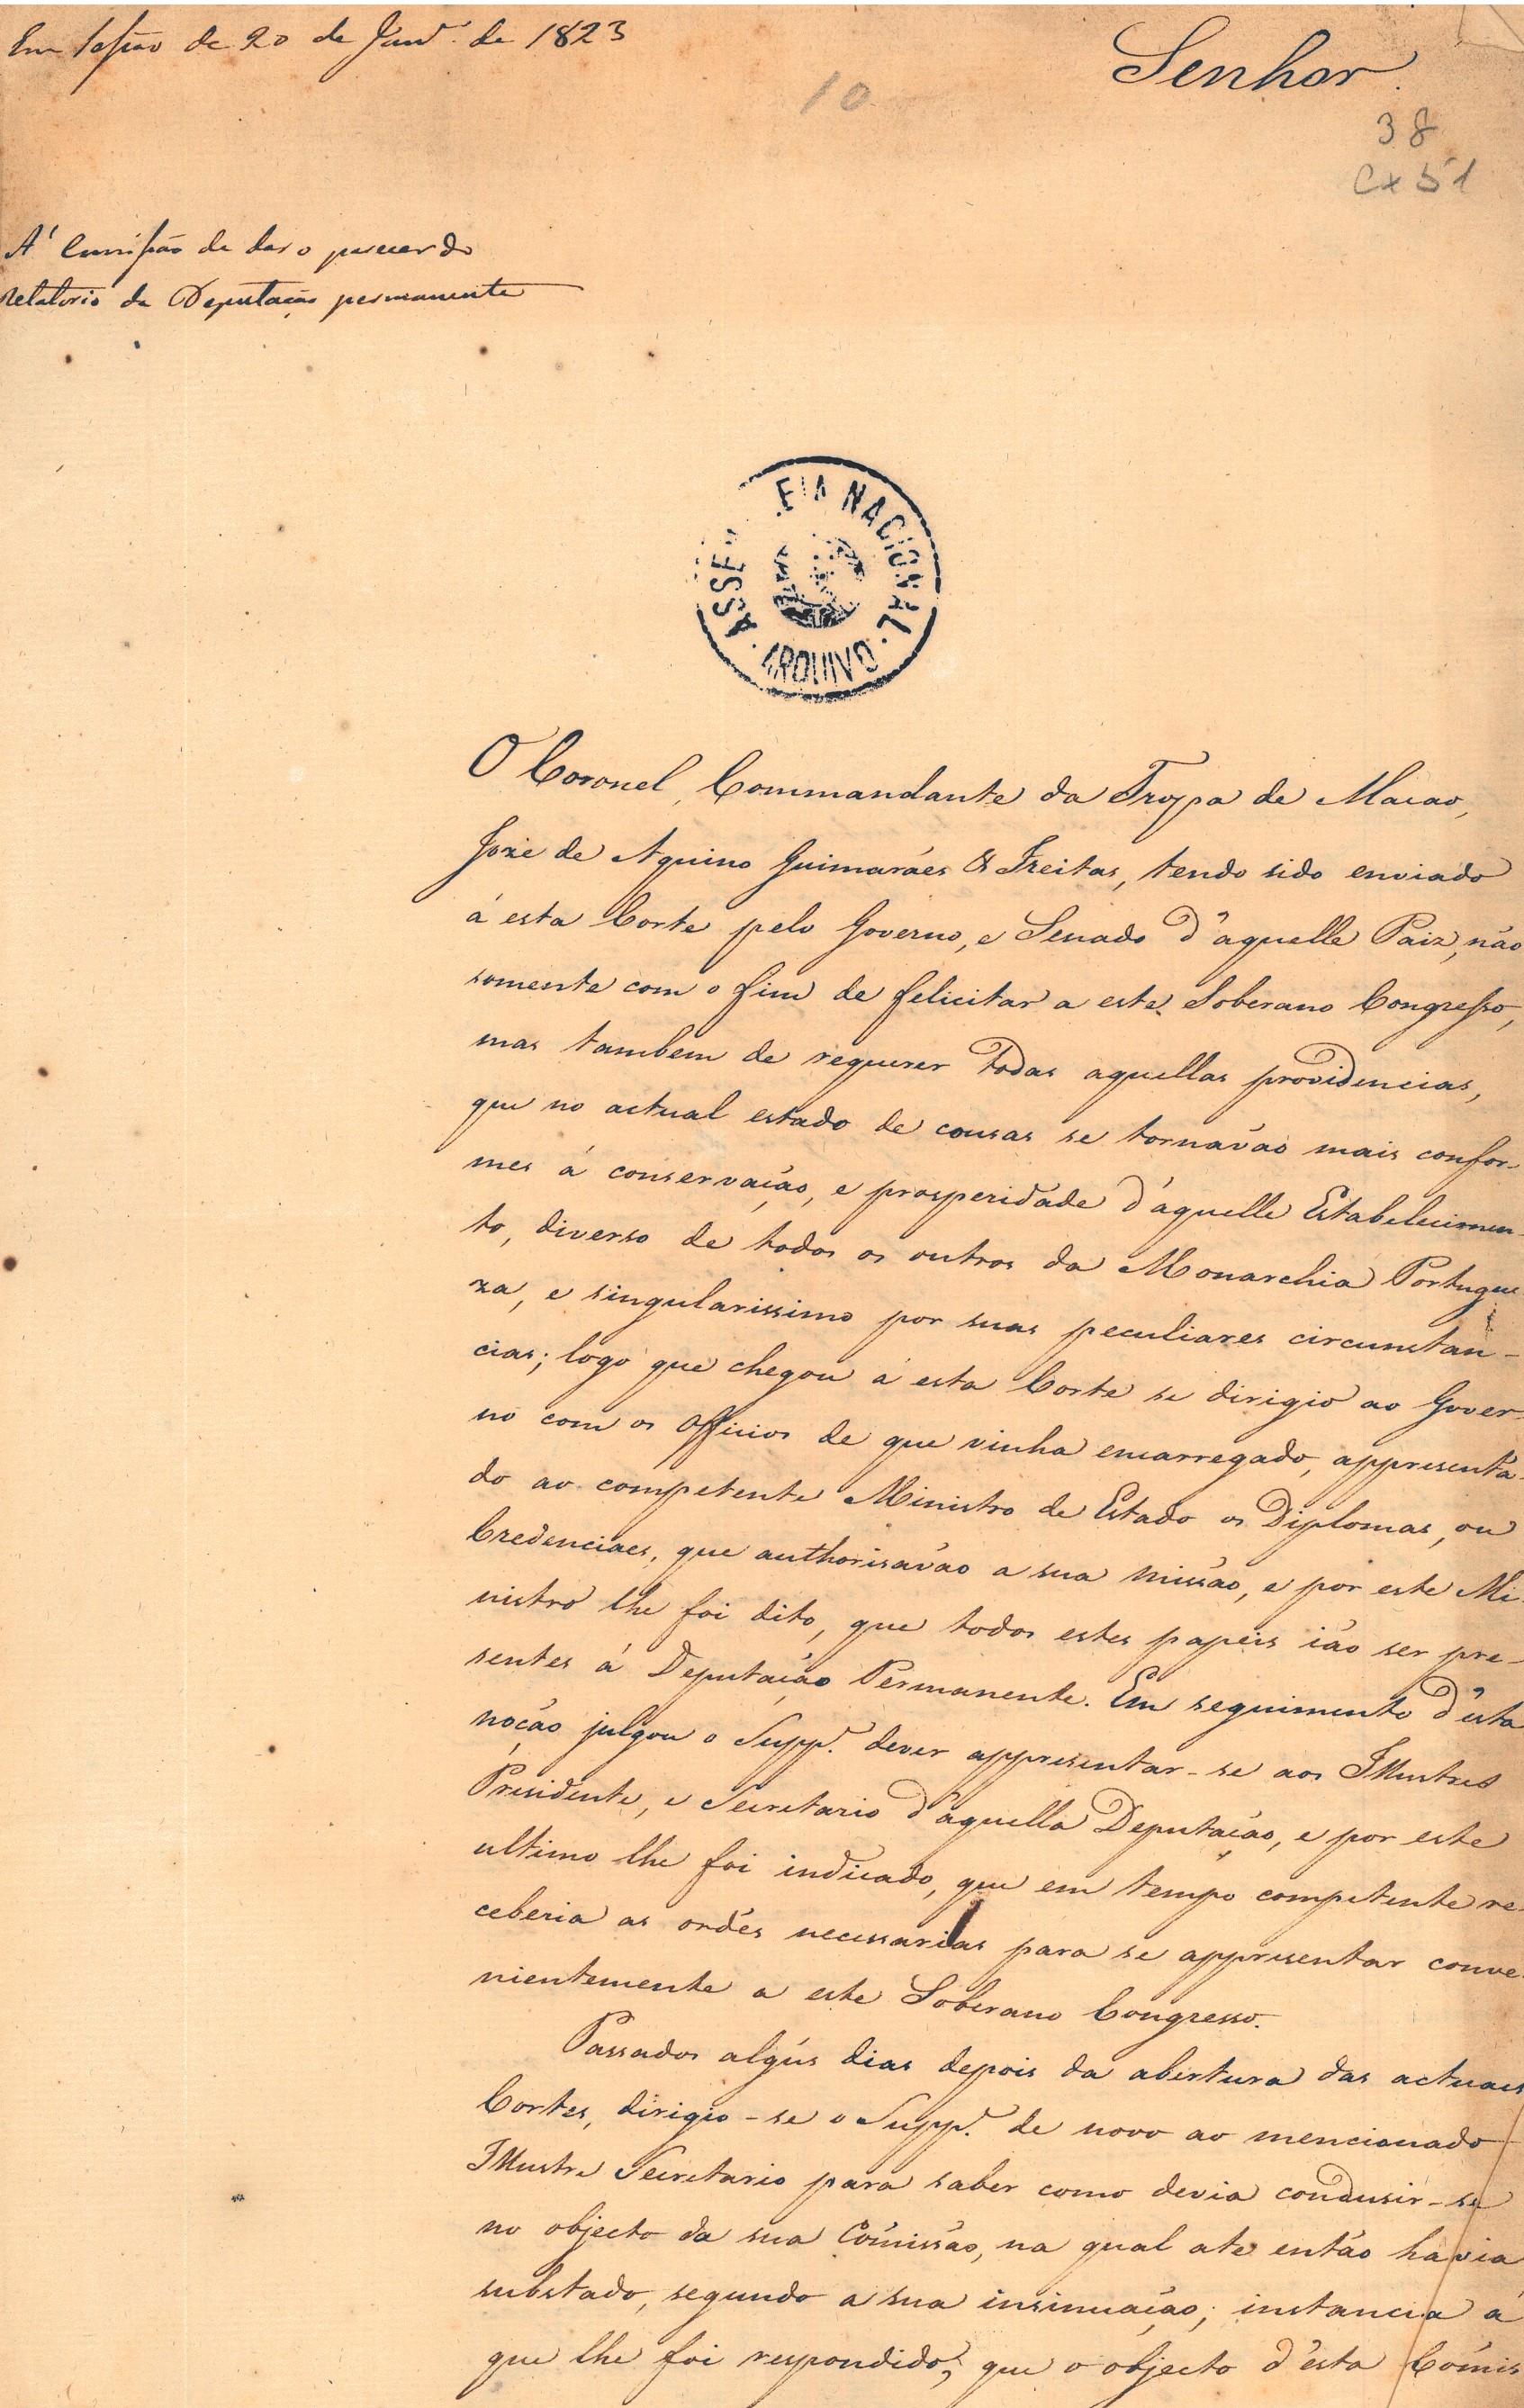 Em Sessão de 20 de Janro. de 1823
Senhor.
10
38
Cx 51
A' Comissão de dar o parecer do
Relatorio da Deputação permanente
ASSE EIA NACIONAL
ARQUIVO
O Coronel, Commandante da Tropa de Macao,
Joze de Aquino Guimarães & Freitas, tendo sido enviado
á esta Corte pelo Governo, e Senado d'aquelle Paiz, não
somente com o fim de felicitar a este Soberano Congresso,
mas tambem de requerer todas aquellas providencias,
que no actual estado de cousas se tornavão mais confor-
mes á conservação, e prosperidade d'aquelle Estabelecimen-
to, diverso de todos os outros da Monarchia Portugue-
za, e singularissimo por suas peculiares circumstan-
cias; logo que chegou á esta Corte se dirigio ao Gover-
no com os Officios de que vinha encarregado, appresentã-
do ao competente Ministro de Estado os Diplomas, ou
Credenciaes, que authorisavão a sua missão, e por este Mi-
nistro lhe foi dito, que todos estes papeis ião ser pre-
sentes á Deputação Permanente. Em seguimento d'esta
noção julgou o Supp.e dever appresentar-se aos Illustres
Presidente, e Secretario d'aquella Deputação, e por este
ultimo lhe foi indicado, que em tempo competente re-
ceberia as ordẽs necessarias para se appresentar conve-
nientemente a este Soberano Congresso.
Passados algũs dias depois da abertura das actuaes
Cortes, dirigio-se o Supp.e de novo ao mencionado
Illustre Secretario para saber como devia condusir-se
no objecto da sua Cõmissão, na qual ate então havia
substado, segundo a sua insinuação; instancia á
que lhe foi respondido, que o objecto d'esta Cõmis